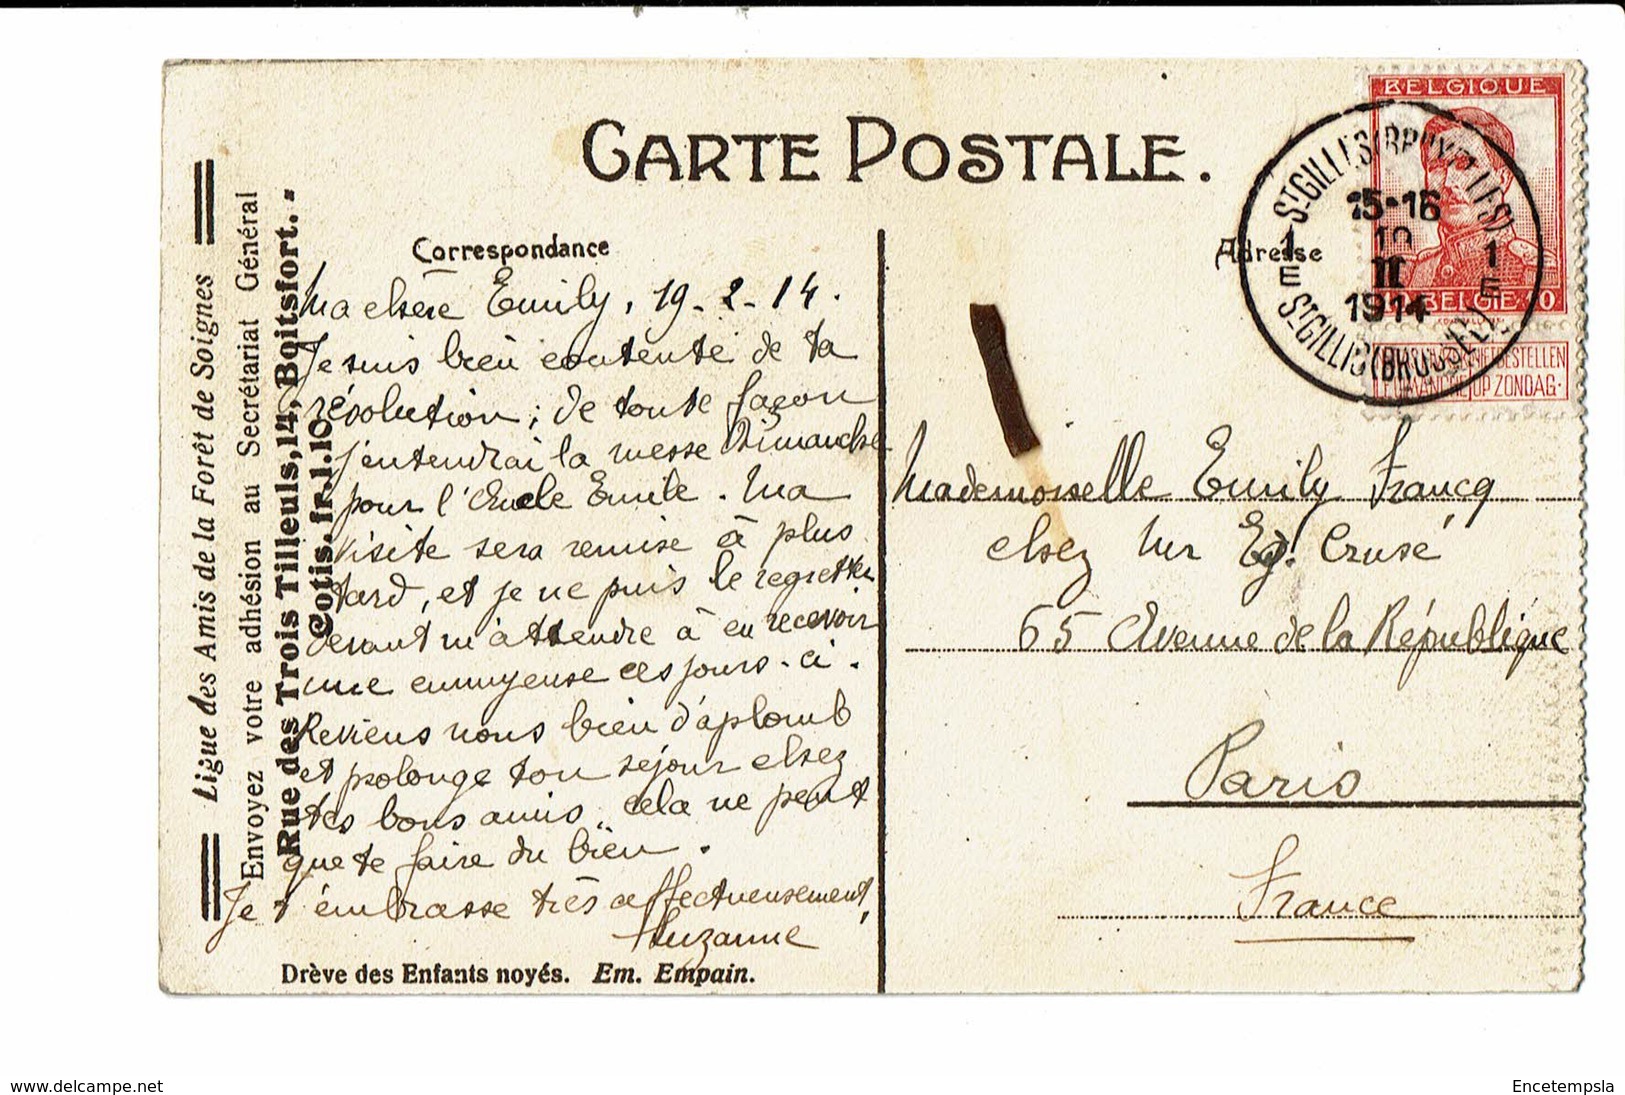 CARTE POSTALE.
Correspondance
Adresse
Ligue des Amis de la Forêt de Soignes
Envoyez votre adhésion au Secrétariat Général
Rue des Trois Tilleuls, 14, Boitsfort. -
Cotis. fr. 1.10
Ma chère Emily, 19-2-14.
Je suis bien contente de ta
révolution; de toute façon
j'entendrai la messe Dimanche
pour l'Oncle Emile. Ma
visite sera remise à plus
tard, et je ne puis le regretter
devant m'attendre à en recevoir
une ennuyeuse ces jours-ci.
Reviens nous bien d'aplomb
et prolonge ton séjour chez
tes bons amis, cela ne peut
que te faire du bien.
Je t'embrasse très affectueusement,
Suzanne
Drève des Enfants noyés. Em. Empain.
BELGIQUE
BELGIË
NIET BESTELLEN
OP ZONDAG
ST GILLES (BRUXELLES)
15-16
19
II
1914
1
E
1
E
ST GILLIS (BRUSSEL)
Mademoiselle Emily Francq
chez Mr Ed. Crusé
65 Avenue de la République
Paris
France
www.delcampe.net
Encetempsla